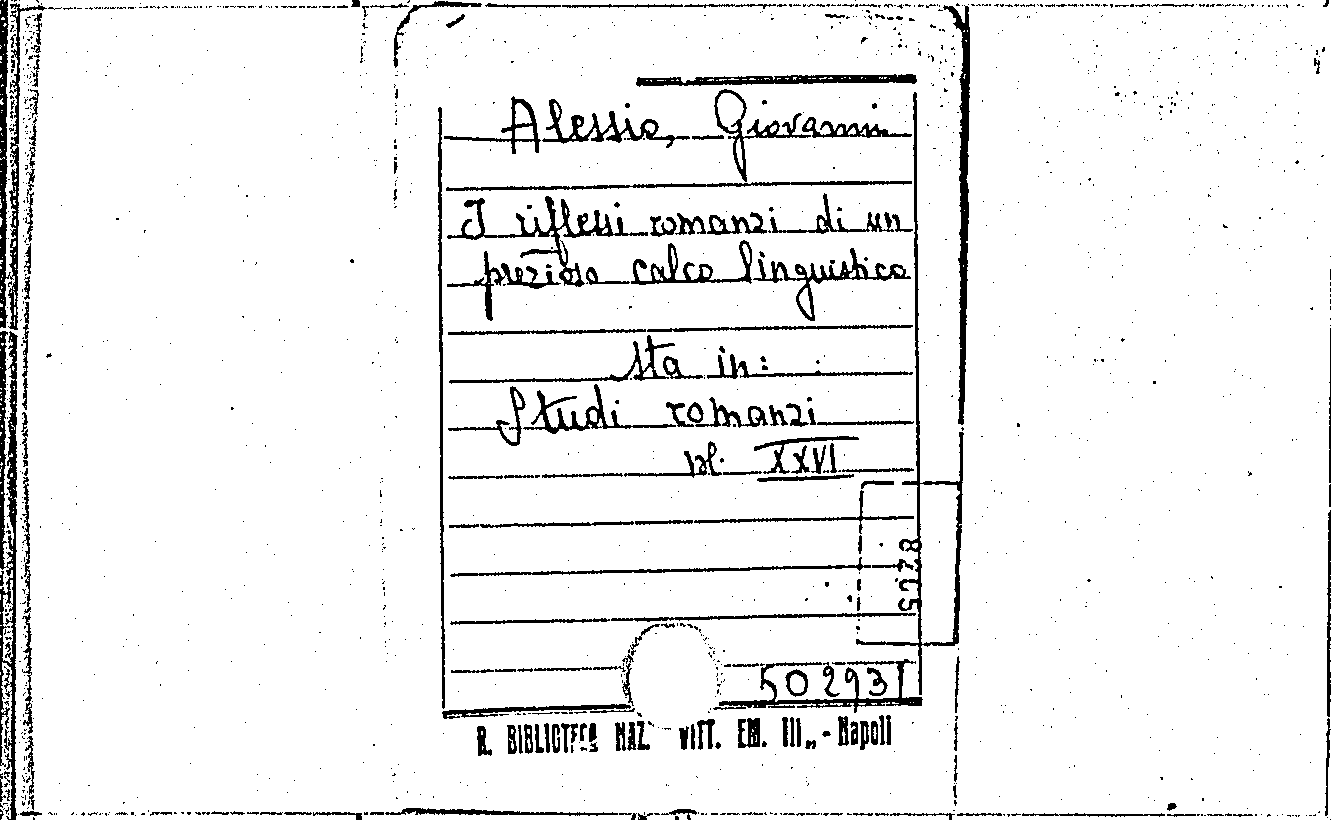 Alessio, Giovanni
I riflessi romanzi di un
prezioso calco linguistico
sta in:
Studi romanzi
vol. XXVI
502931
R. BIBLIOTECA NAZ. VITT. EM. III„ - Napoli